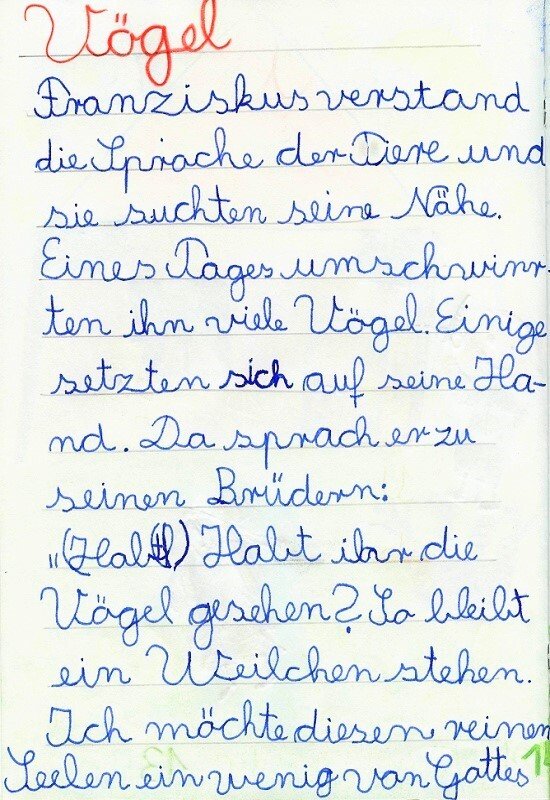 Vögel
Franziskus verstand
die Sprache der Tiere und
sie suchten seine Nähe.
Eines Tages umschwirr-
ten ihn viele Vögel. Einige
setzten sich auf seine Ha-
nd. Da sprach er zu
seinen Brüdern:
„(Habt) Habt ihr die
Vögel gesehen? So bleibt
ein Weilchen stehen.
Ich möchte diesen reinen
Seelen ein wenig von Gottes